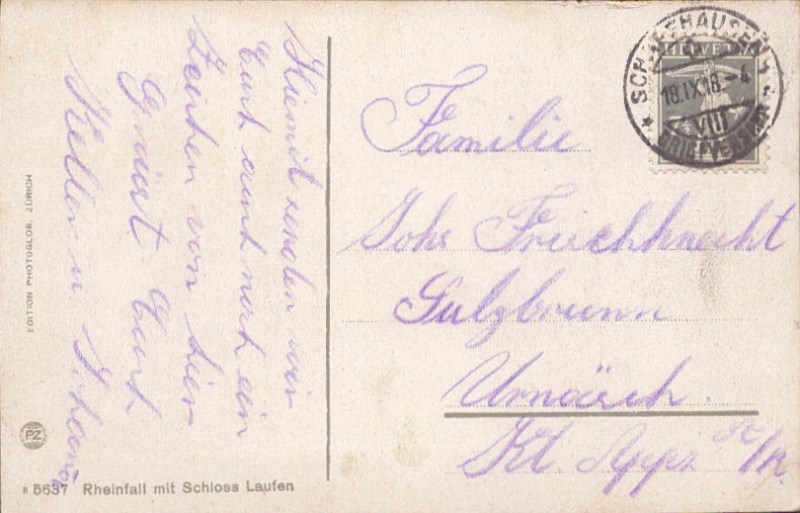 Hiemit senden wir
Euch auch noch ein
Zeichen von hier
Grüsst Euch
Keller u.
Familie
Johs Frischknecht
Sulzbrunn
Urnäsch.
Kt. Appz
SCHAFFHAUSEN 1
HELVETIA
18.IX.18.-4
VIII
BRIEFVERSAND
EDITION PHOTOGLOB, ZÜRICH
PZ
5637 Rheinfall mit Schloss Laufen